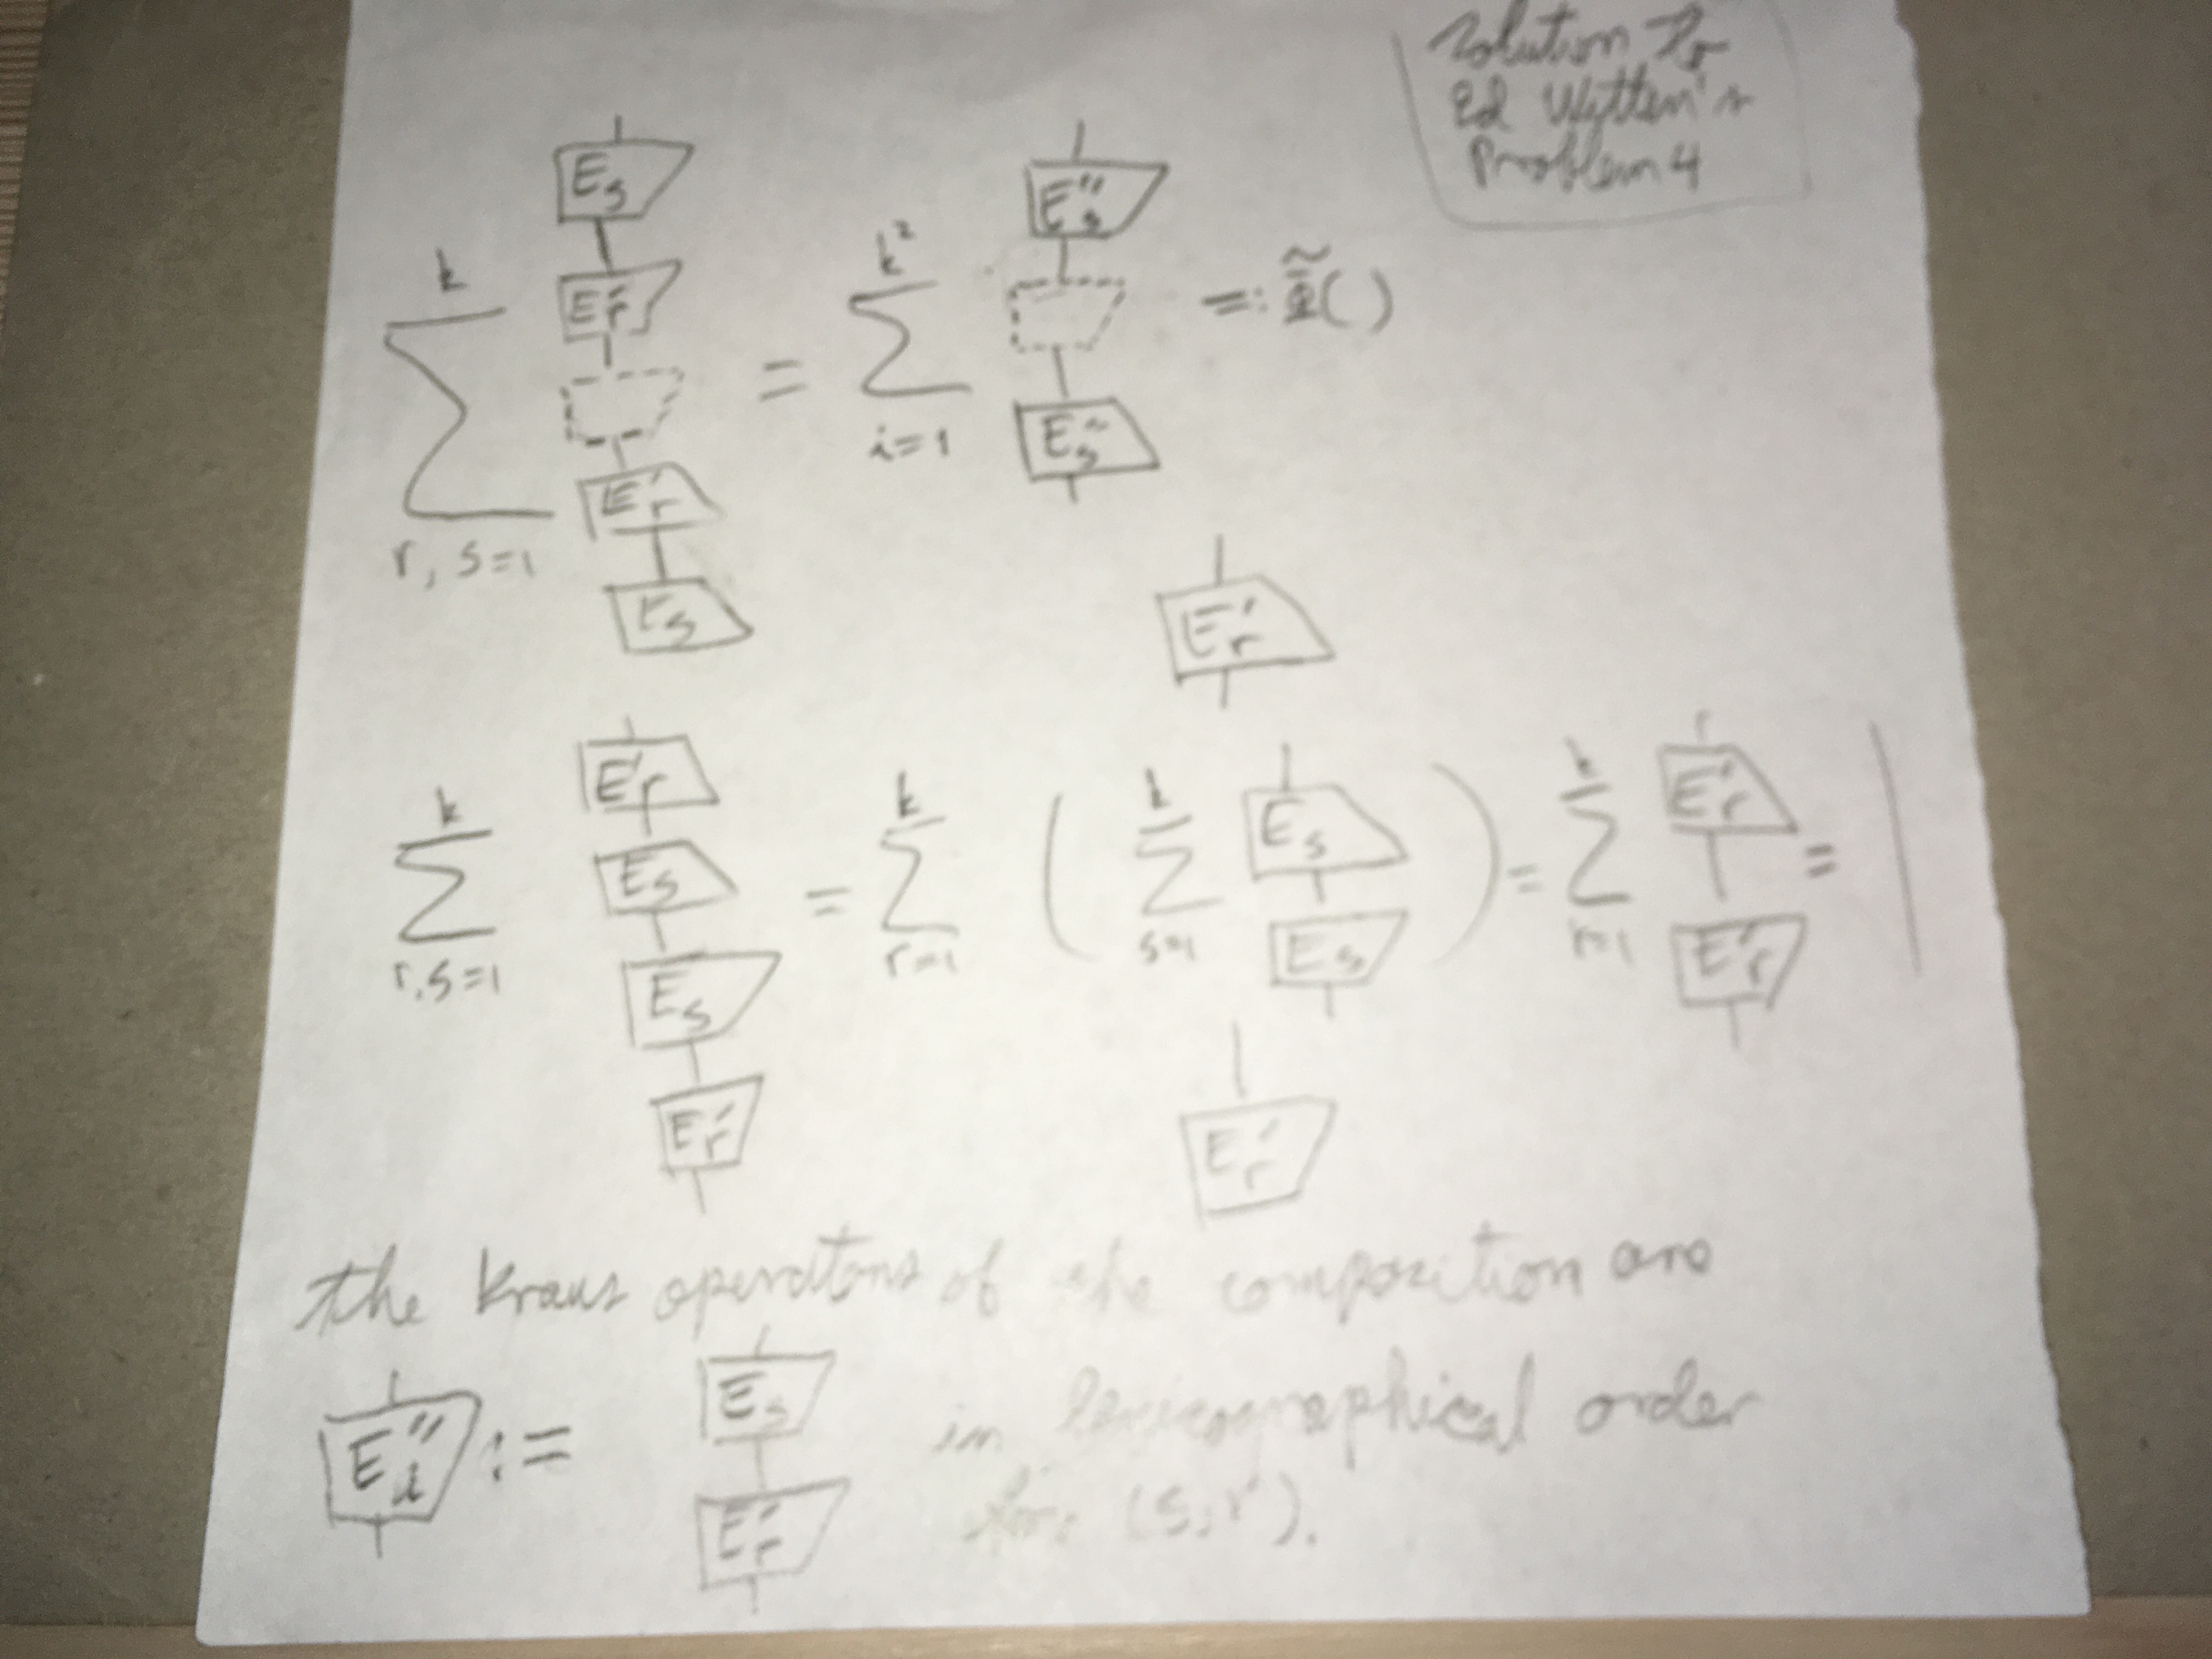 Solution to
Ed Witten's
Problem 4
k
Σ
r, s=1
E_s
E'_r
E'_r
E_s
=
k²
Σ
i=1
E''_s
E''_s
=: Φ̃( )
k
Σ
r,s=1
E'_r
E_s
E_s
E'_r
=
k
Σ
r=1
E'_r
(
k
Σ
s=1
E_s
E_s
)
E'_r
=
k
Σ
r=1
E'_r
E'_r
= |
the Kraus operators of the composition are
E''_i :=
E_s
E'_r
in lexicographical order
for (s,r).